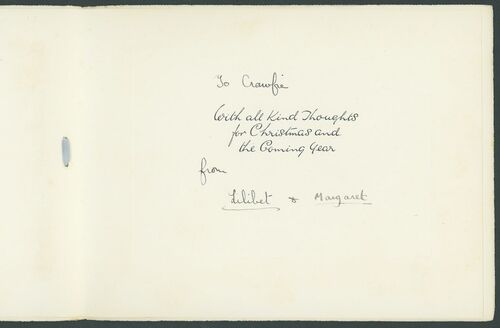 To Crawfie
With all Kind Thoughts
for Christmas and
the Coming Year
from
Lilibet & Margaret